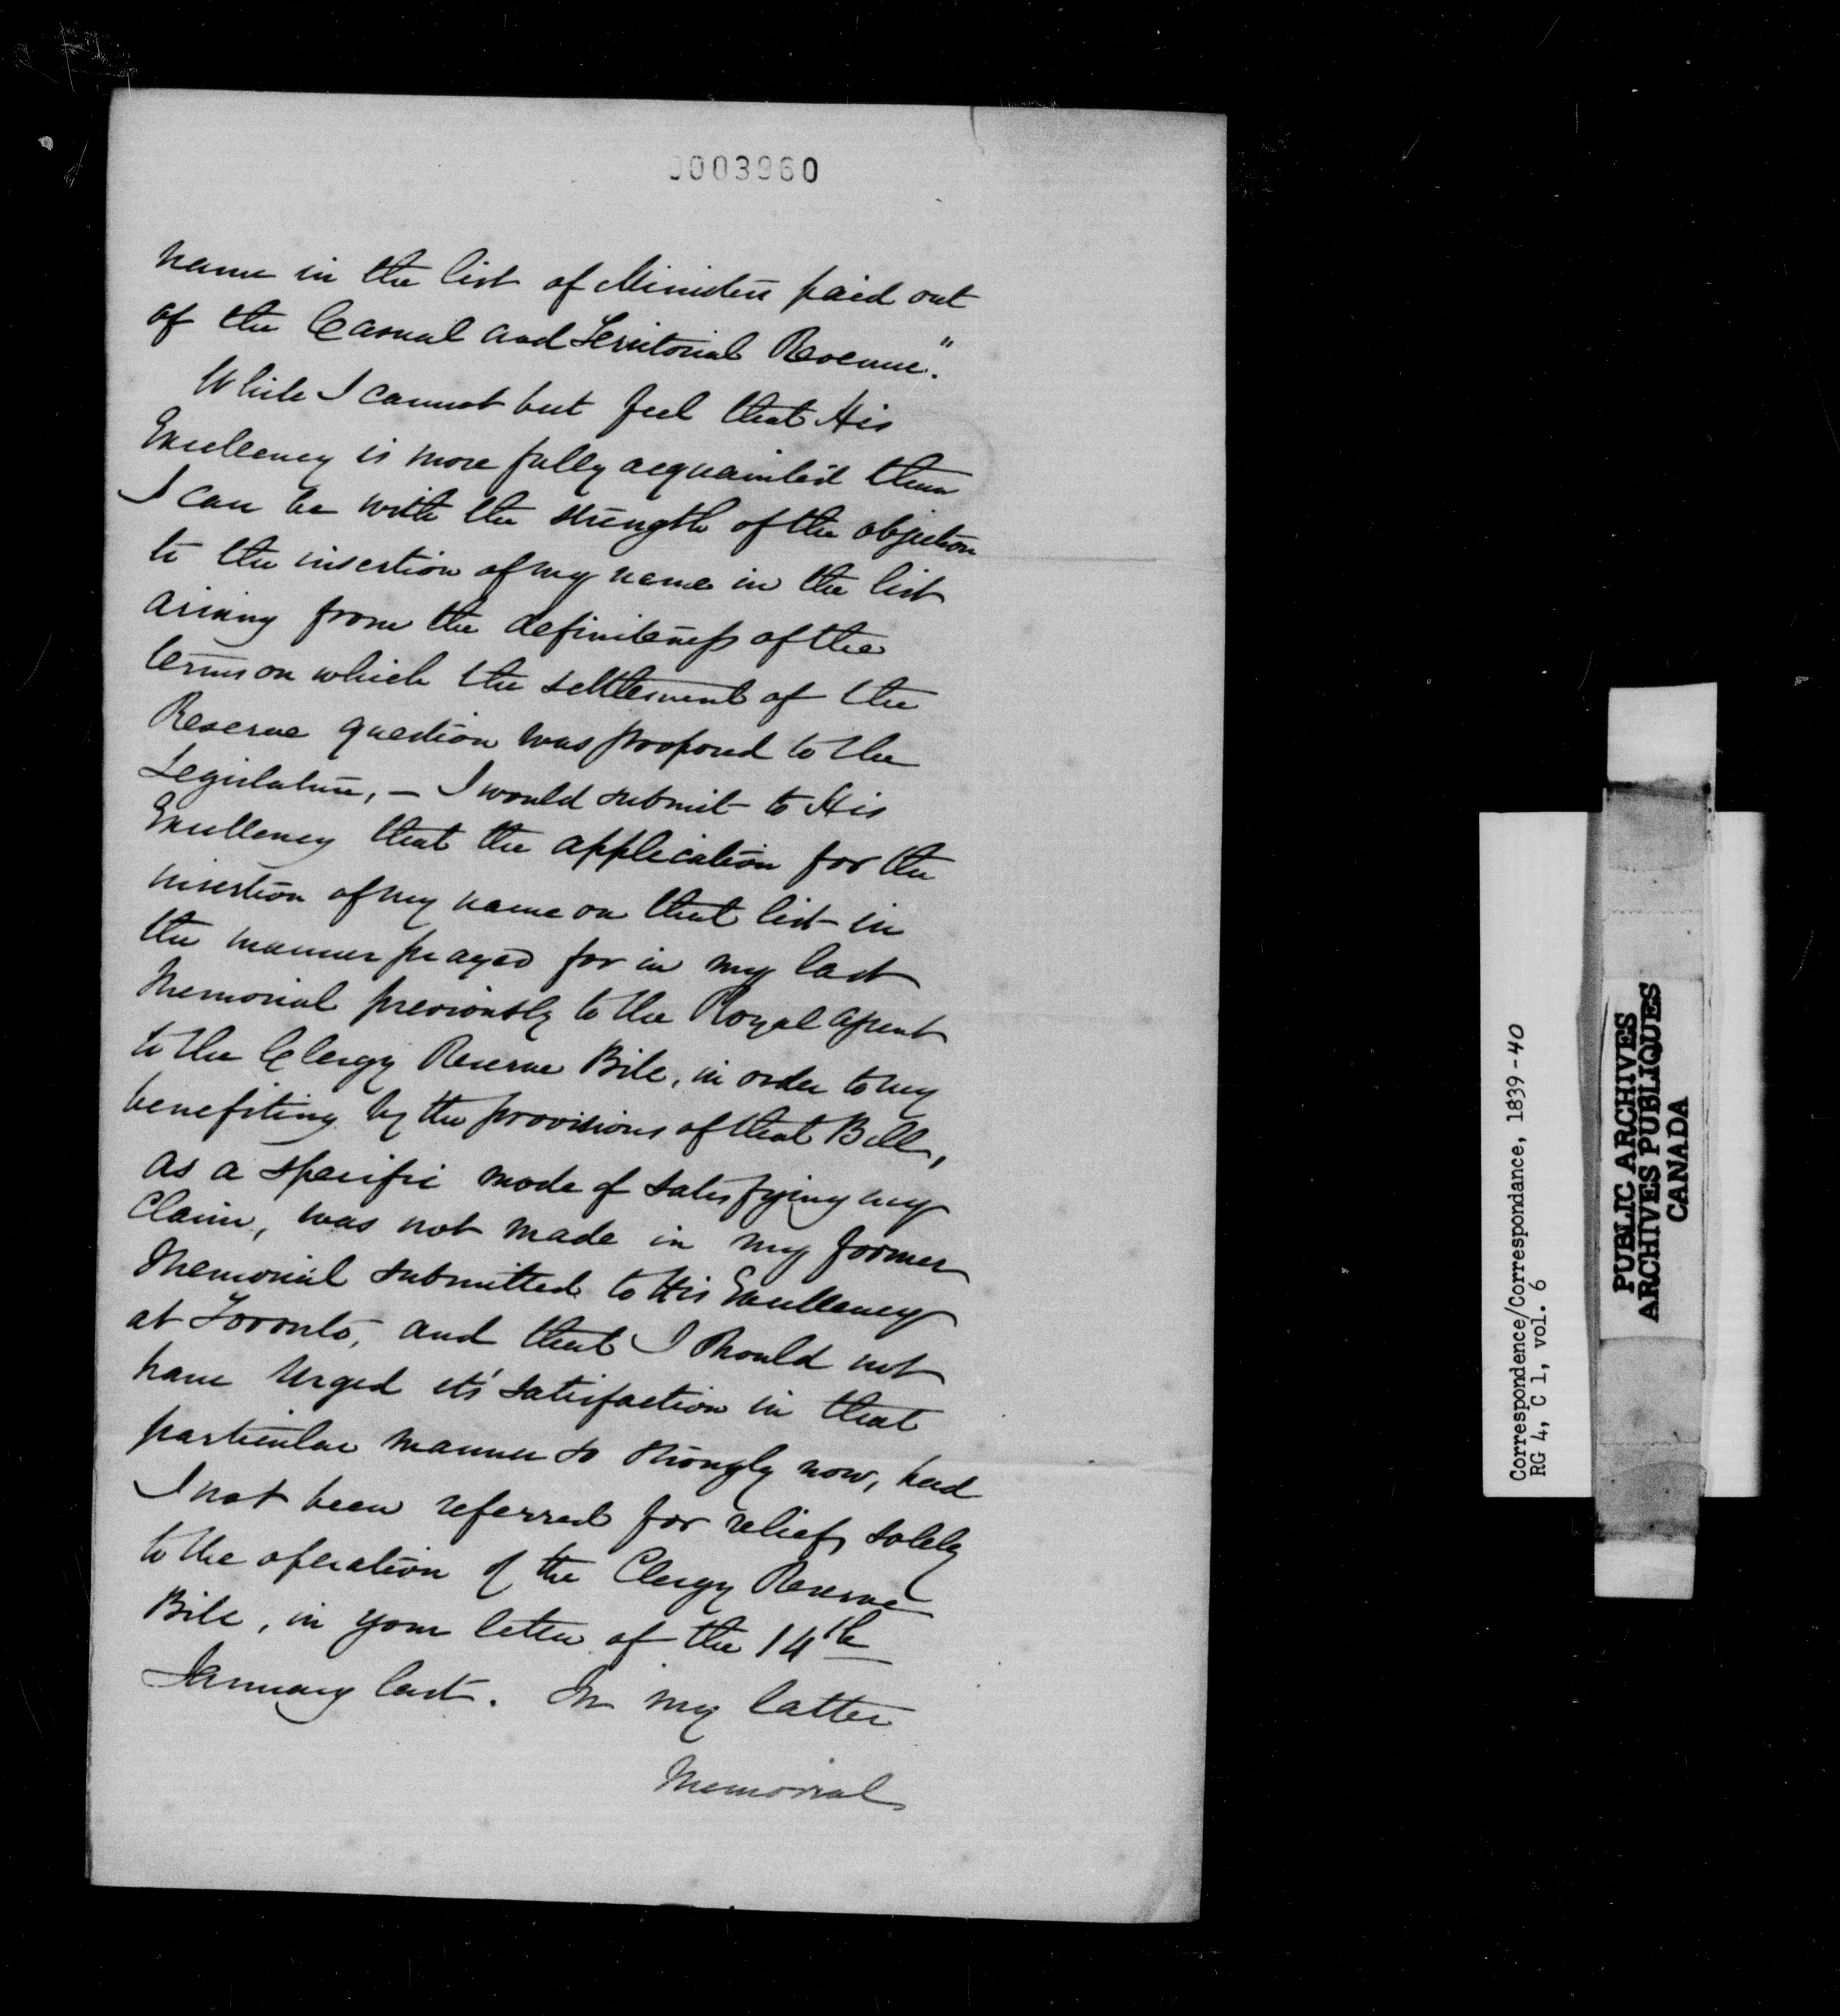 0003960
name in the list of Ministers paid out
of the Casual and Territorial Revenue."
While I cannot but feel that His
Excellency is more fully acquainted than
I can be with the strength of the objection
to the insertion of my name in the list
arising from the definiteness of the
terms on which the settlement of the
Reserve question was proposed to the
Legislature, – I would submit to His
Excellency that the application for the
insertion of my name on that list in
the manner prayed for in my last
Memorial previously to the Royal assent
to the Clergy Reserve Bill, in order to my
benefiting by the provisions of that Bill,
as a specific mode of satisfying my
Claim, was not made in my former
Memorial submitted to His Excellency
at Toronto, and that I should not
have urged it's satisfaction in that
particular manner so strongly now, had
I not been referred for relief solely
to the operation of the Clergy Reserve
Bill, in your letter of the 14th
January last. In my latter
Memorial
Correspondence/Correspondance, 1839-40
RG 4, C 1, vol. 6
PUBLIC ARCHIVES
ARCHIVES PUBLIQUES
CANADA